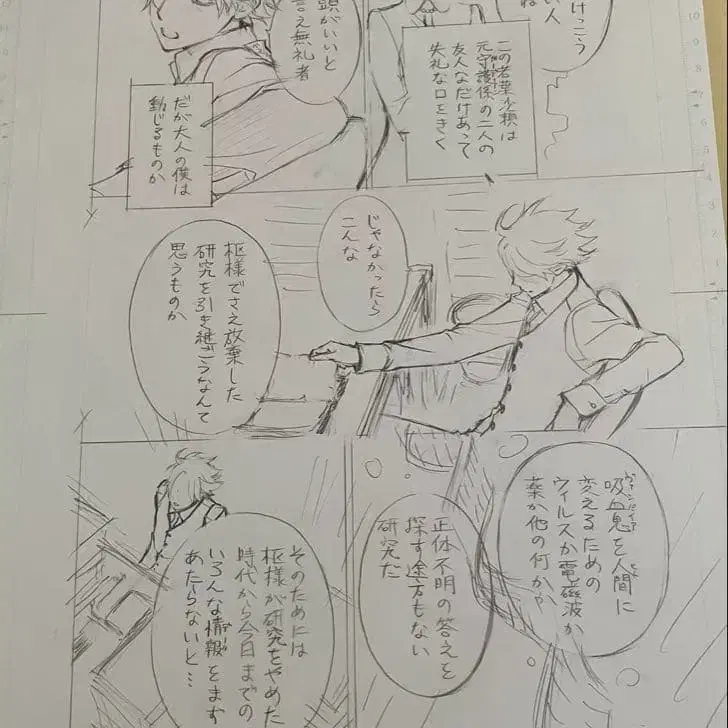 けっこう
い人
ね
この若葉少横は
元守護係の二人の
ガーディアン
友人なだけあって
失礼な口をきく
頭がいいと
言え無礼者
だが大人の僕は
動じるものか
じゃなかったら
こんな
枢様でさえ放棄した
研究を引き継ごうなんて
思うものか
吸血鬼を人間に
ヴァンパイア
変えるための
ウィルスか電磁波か
薬か他の何かや
正体不明の答えを
探す途方もない
研究だ
そのためには
枢様が研究をやめた
時代から今日までの
いろんな情報をまず
あたらないと…